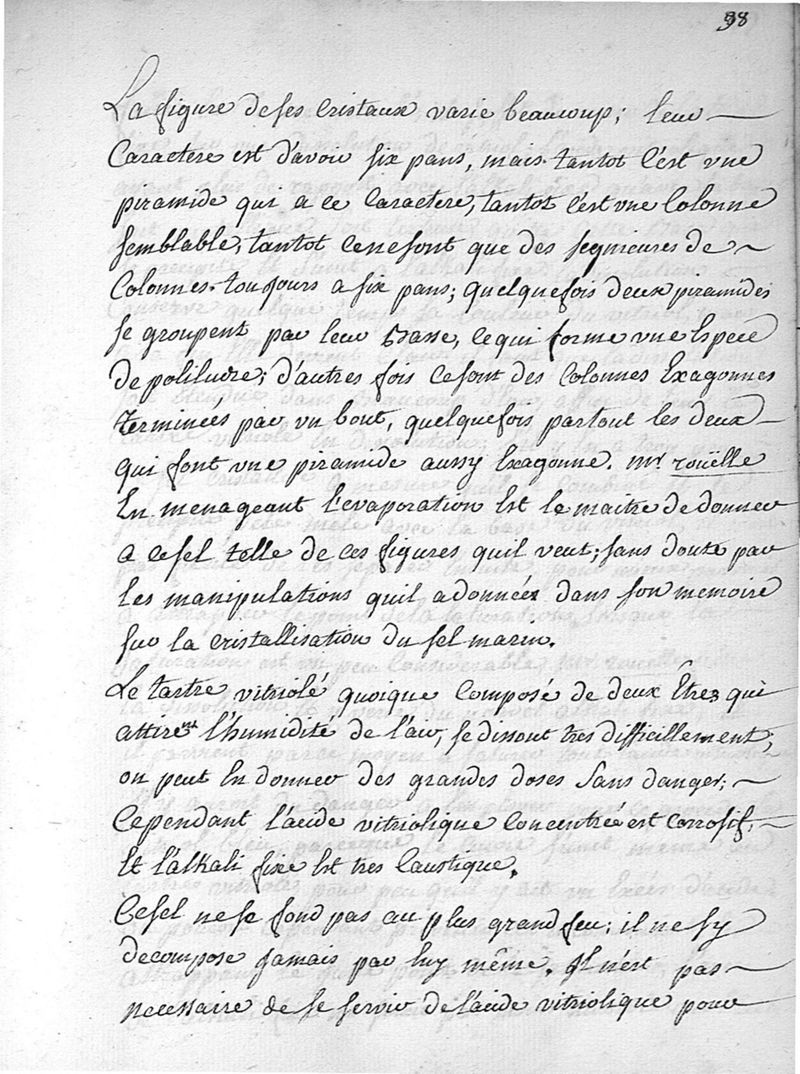 98
La figure de ses cristaux varie beaucoup; leur
Caractere est d'avoir six pans, mais tantot c'est vne
piramide qui a ce Caractere, tantot c'est vne Colonne
semblable, tantot ce ne sont que des segmens de
Colonnes toujours a six pans; quelquefois deux piramides
se groupent par leur Basse, ce qui forme vne Espece
de poliludre; d'autres fois ce sont des Colonnes Exagonnes
terminées par vn bout, quelquefois partout les deux
qui font vne piramide aussy Exagonne. mr. roüelle
En menageant l'evaporation Est le maitre de donner
a ce sel telle de ces figures quil veut; sans doute par
les manipulations quil a données dans son memoire
sur la cristallisation du sel marin.
Le tartre vitriolé quoique Composé de deux Êtres qui
attirent l'humidité de l'air, se dissout tres difficillement;
on peut En donner des grandes doses sans danger;
Cependant l'acide vitriolique Concentrée est Corrosif,
Et l'alkali fixe Est tres Caustique.
Ce sel ne se fond pas au plus grand feu; il ne sy
decompose jamais par luy même. Il n'est pas
necessaire de se servir de l'acide vitriolique pour